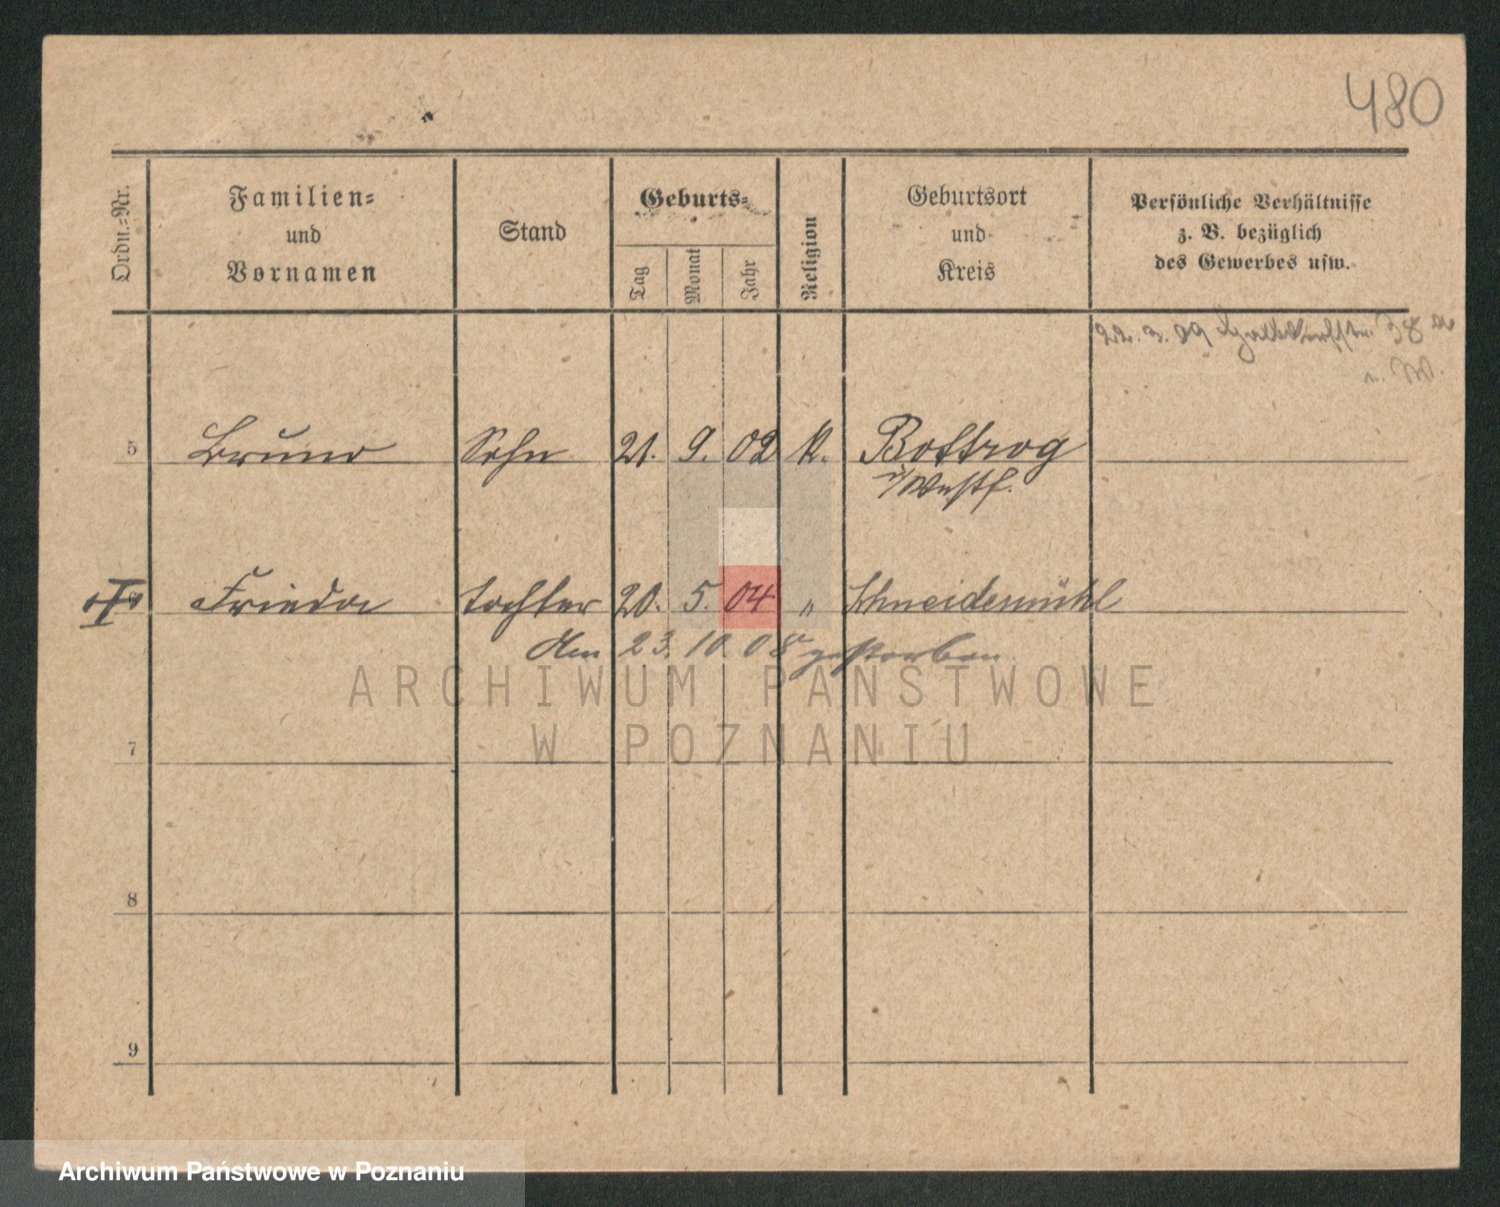 480
Ordn.-Nr.
Familien-
und
Vornamen
Stand
Geburts-
Tag
Monat
Jahr
Religion
Geburtsort
und
Kreis
Persönliche Verhältnisse
z. B. bezüglich
des Gewerbes usw.
22. 3. 09 38
5 Bruno Sohn 21. 9. 02 K. Bottrog
i/Westf.
Frieda tochter 20. 5. 04 " Schneidemühl
Am 23. 10. 08 gestorben
ARCHIWUM PAŃSTWOWE
W POZNANIU
7
8
9
Archiwum Państwowe w Poznaniu